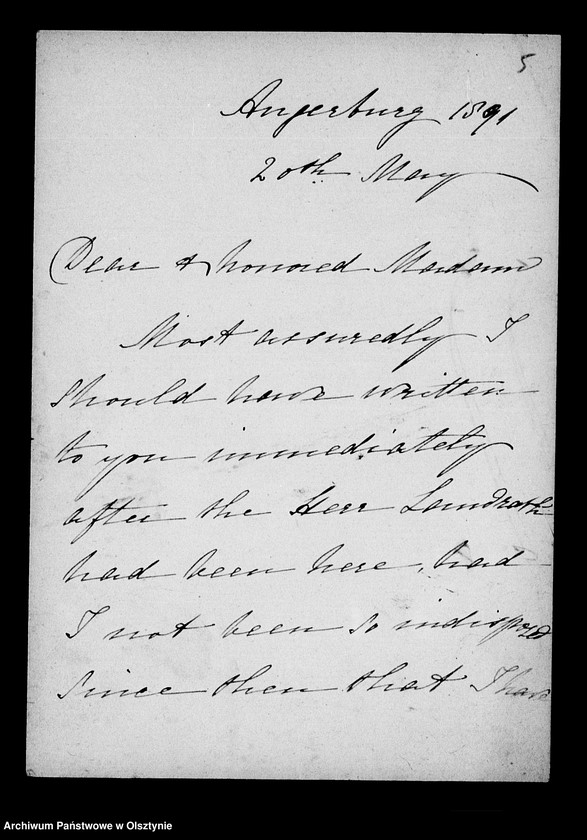 5
Angerburg 1891
20th May
Dear & honored Madam
Most assuredly I
should have written
to you immediately
after the Herr Landrath
had been here, had
I not been so indisposed
since then that I have
Archiwum Państwowe w Olsztynie